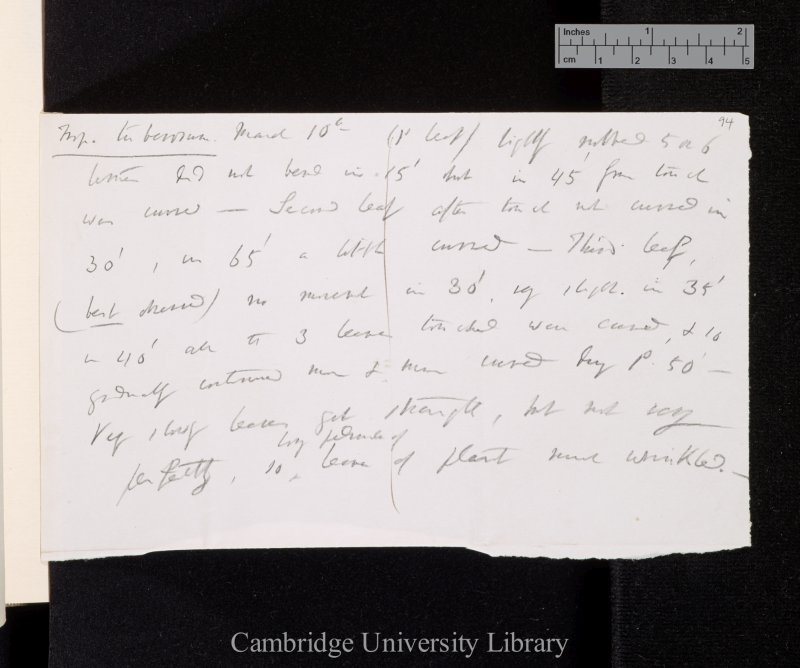 Inches 1 2
cm 1 2 3 4 5
94
Trop. tuberosum. March 10th (1st leaf) lightly rubbed 5 or 6
times did not bend in 15' but in 45' from touch
was curved — Second leaf after touch not curved in
30', in 65' a little curved — Third leaf,
(best observed) no movement in 30', very slight. in 35'
in 40' all the 3 leaves touched were curved, & so
gradually continued more & more curved 50' —
Very slowly leaves got straight, but not very
perfectly, so leaves of plant much wrinkled. —
Cambridge University Library